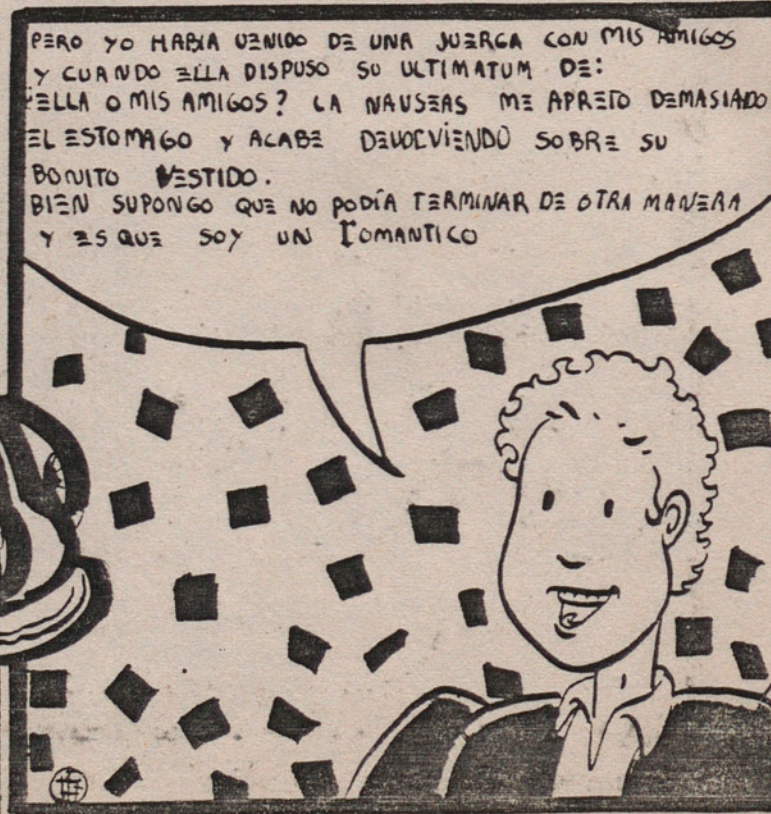 PERO YO HABIA VENIDO DE UNA JUERGA CON MIS AMIGOS
Y CUANDO ELLA DISPUSO SU ULTIMATUM DE:
¿ELLA O MIS AMIGOS? LA NAUSEAS ME APRETO DEMASIADO
EL ESTOMAGO Y ACABE DEVOLVIENDO SOBRE SU
BONITO VESTIDO.
BIEN SUPONGO QUE NO PODÍA TERMINAR DE OTRA MANERA
Y ES QUE SOY UN ROMANTICO